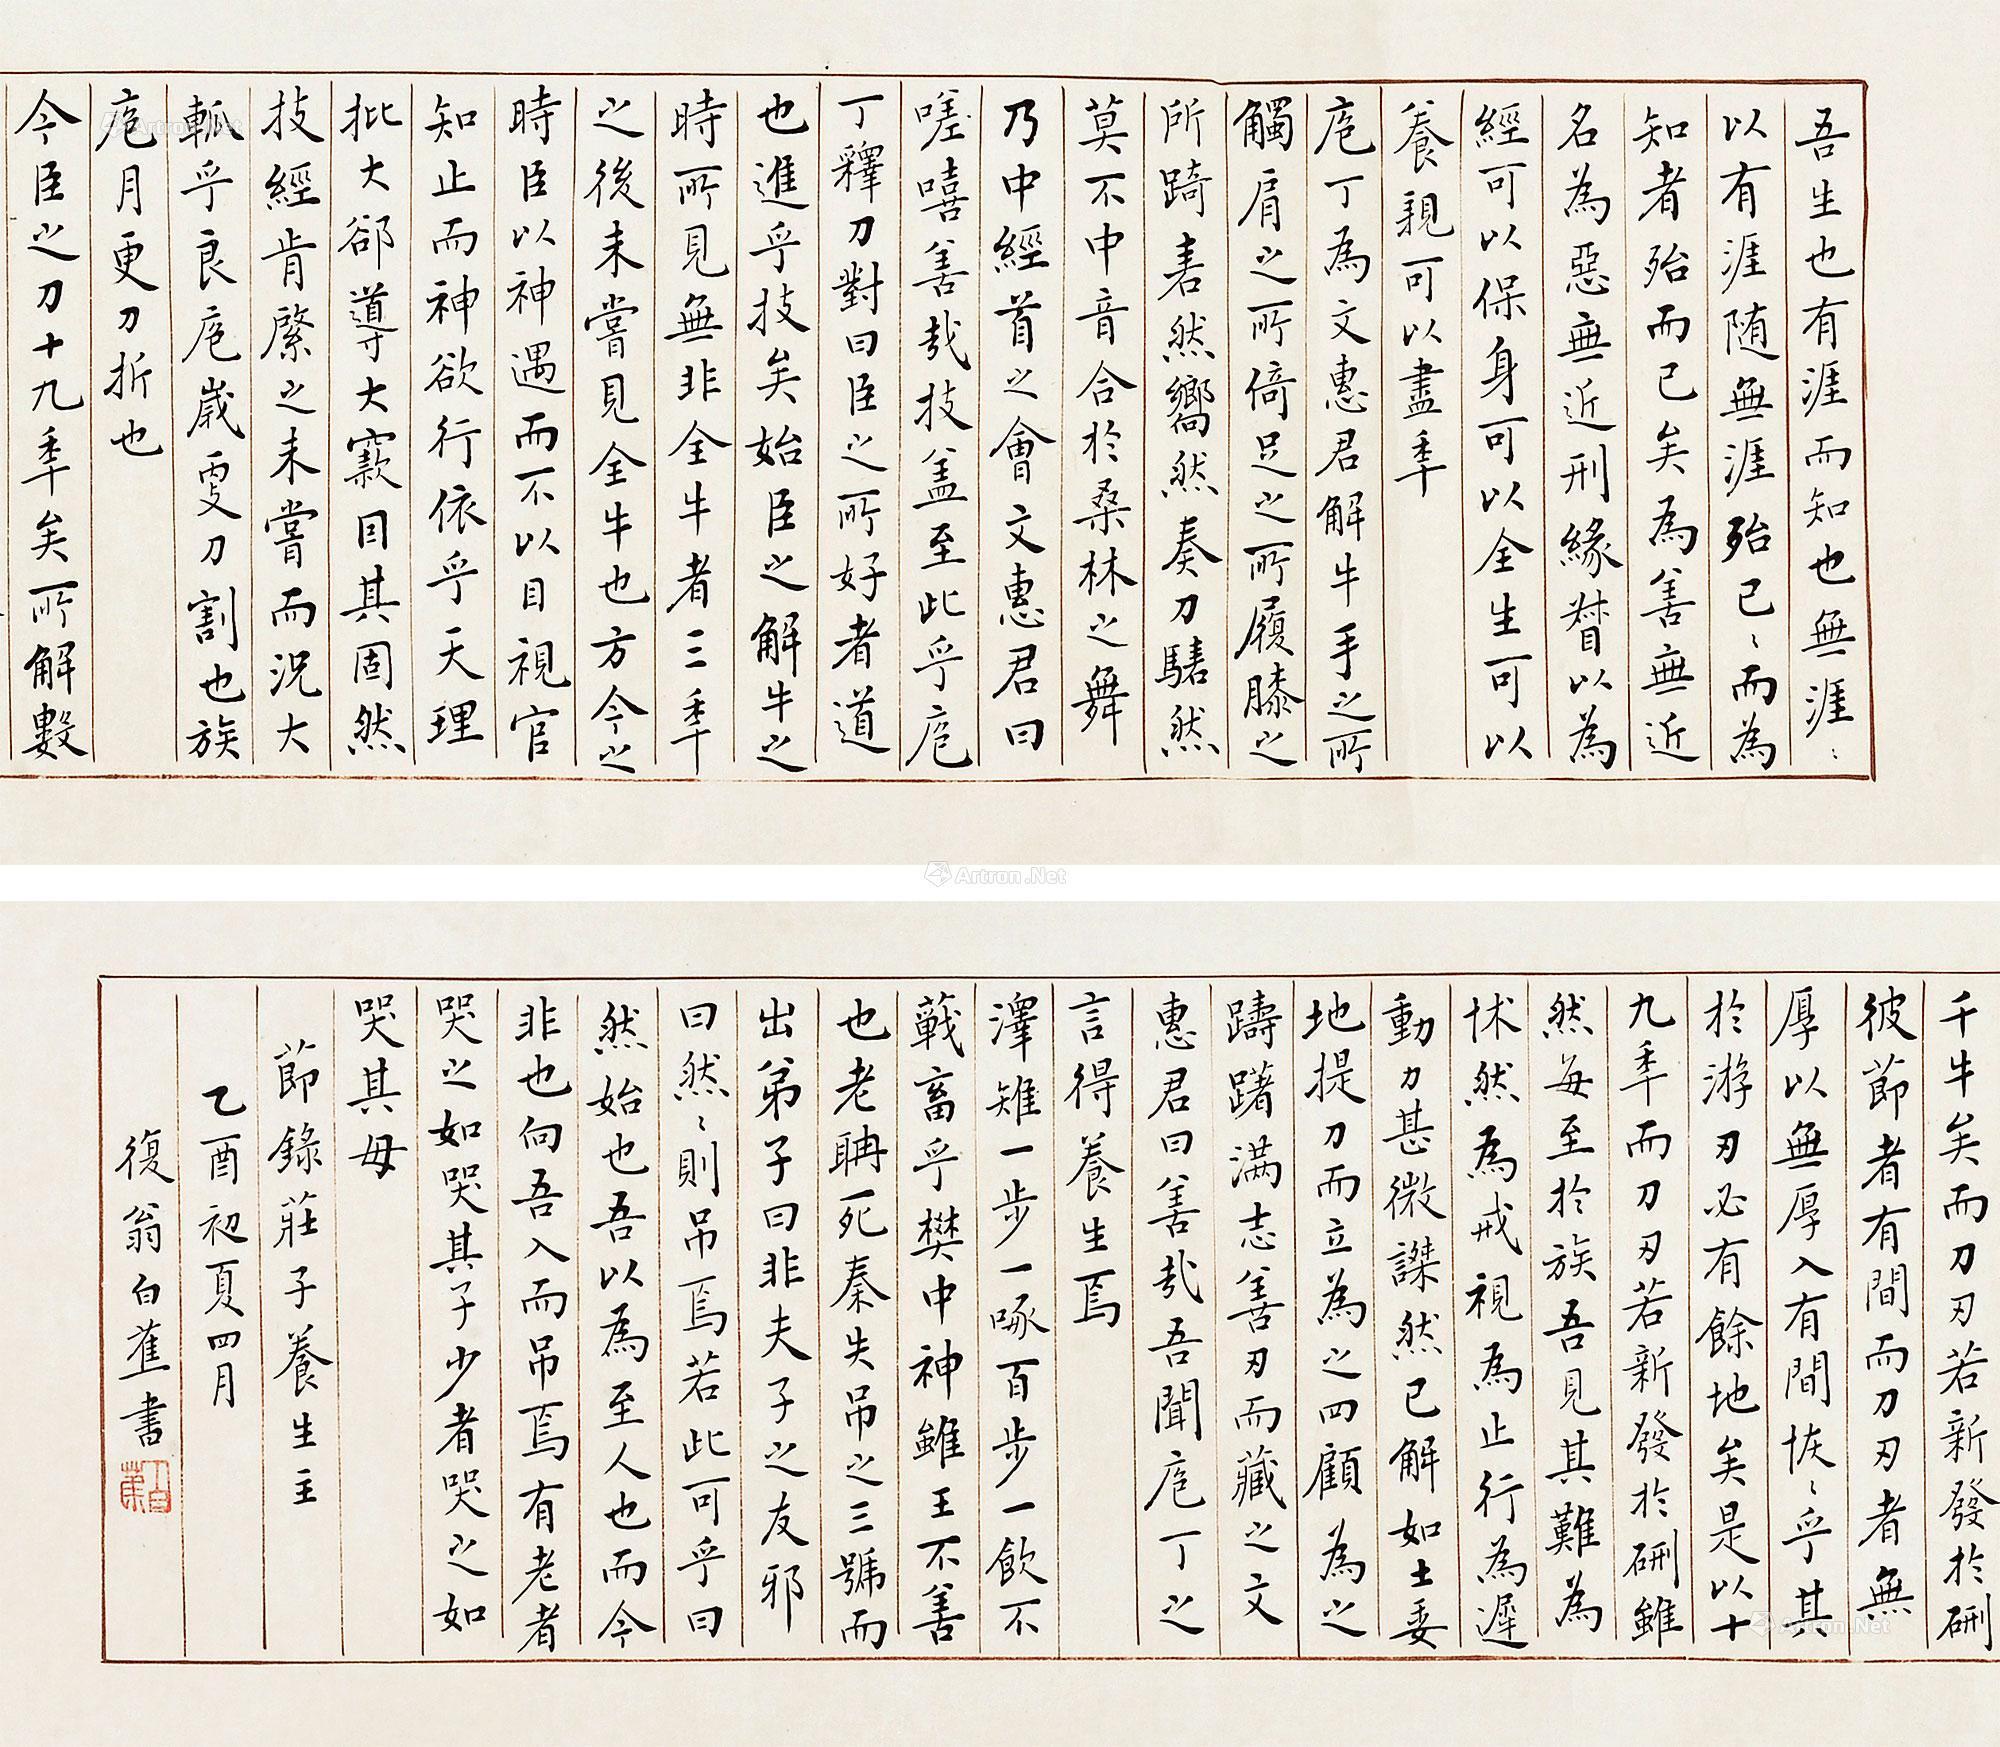 吾生也有涯而知也無涯〻
以有涯随無涯殆已〻而為
知者殆而已矣為善無近
名為惡無近刑緣督以為
經可以保身可以全生可以
養親可以盡年
庖丁為文惠君解牛手之所
觸肩之所倚足之所履膝之
所踦砉然嚮然奏刀騞然
莫不中音合於桑林之舞
乃中經首之會文惠君曰
嘻善哉技盖至此乎庖
丁釋刀對曰臣之所好者道
也進乎技矣始臣之解牛之
時所見無非全牛者三年
之後未嘗見全牛也方今之
時臣以神遇而不以目視官
知止而神欲行依乎天理
批大郤導大窾因其固然
技經肯綮之未嘗而況大
軱乎良庖歲更刀割也族
庖月更刀折也
今臣之刀十九年矣所解數
千牛矣而刀刃若新發於硎
彼節者有間而刀刃者無
厚以無厚入有間恢〻乎其
於游刃必有餘地矣是以十
九年而刀刃若新發於硎雖
然每至於族吾見其難為
怵然為戒視為止行為遲
動刀甚微謋然已解如土委
地提刀而立為之四顧為之
躊躇满志善刃而藏之文
惠君曰善哉吾聞庖丁之
言得養生焉
澤雉一步一啄百步一飲不
蘄畜乎樊中神雖王不善
也老聃死秦失吊之三號而
出弟子曰非夫子之友邪
曰然〻則吊焉若此可乎曰
然始也吾以為至人也而今
非也向吾入而吊焉有老者
哭之如哭其子少者哭之如
哭其母
節錄莊子養生主
乙酉初夏四月
復翁白蕉書
白蕉
Artron.Net